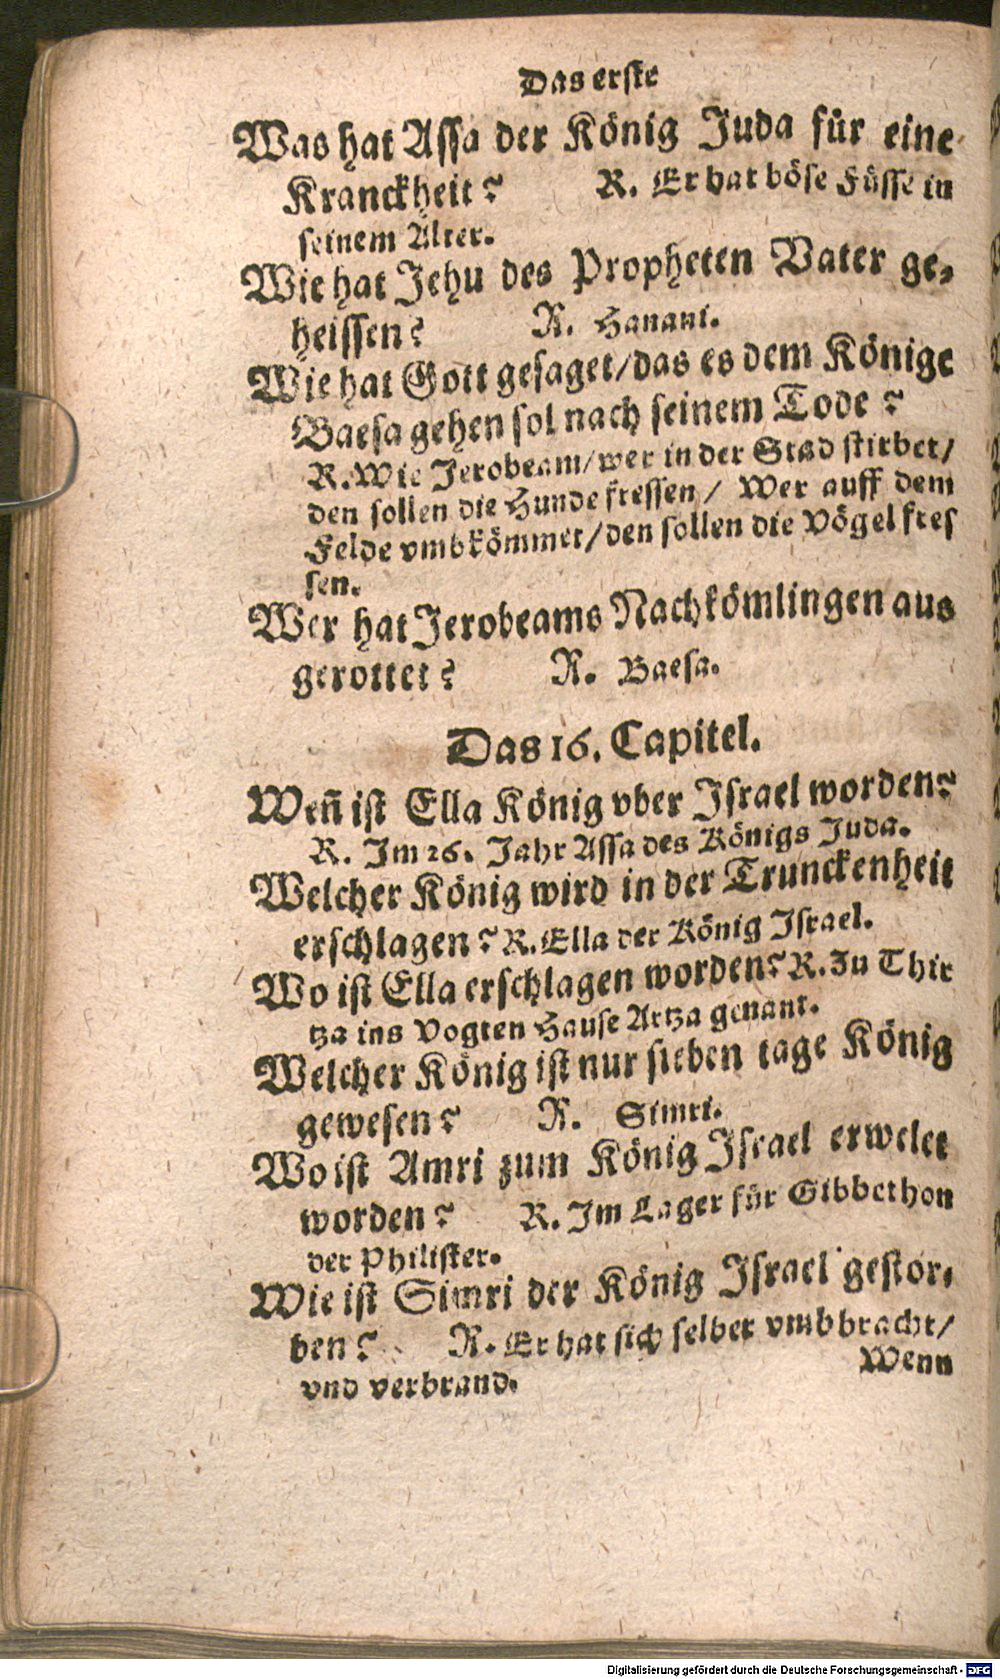 Das erste
Was hat Assa der König Juda für eine
Kranckheit? R. Er hat böse Füsse in
seinem Alter.
Wie hat Jehu des Propheten Vater ge-
heissen? R. Hanani.
Wie hat Gott gesaget/das es dem Könige
Baesa gehen sol nach seinem Tode?
R. Wie Jerobeam/wer in der Stad stirbet/
den sollen die Hunde fressen/ Wer auff dem
Felde vmbkömmet/den sollen die Vögel fres
sen.
Wer hat Jerobeams Nachkömlingen aus
gerottet? R. Baesa.
Das 16. Capitel.
Weñ ist Ella König vber Israel worden?
R. Im 26. Jahr Assa des Königs Juda.
Welcher König wird in der Trunckenheit
erschlagen? R. Ella der König Israel.
Wo ist Ella erschlagen worden? R. Zu Thir
tza ins Vogten Hause Artza genant.
Welcher König ist nur sieben tage König
gewesen? R. Simri.
Wo ist Amri zum König Israel erwelet
worden? R. Im Lager für Gibbethon
der Philister.
Wie ist Simri der König Israel gestor-
ben? R. Er hat sich selber vmbbracht/
vnd verbrand.
Wenn
Digitalisierung gefördert durch die Deutsche Forschungsgemeinschaft - DFG